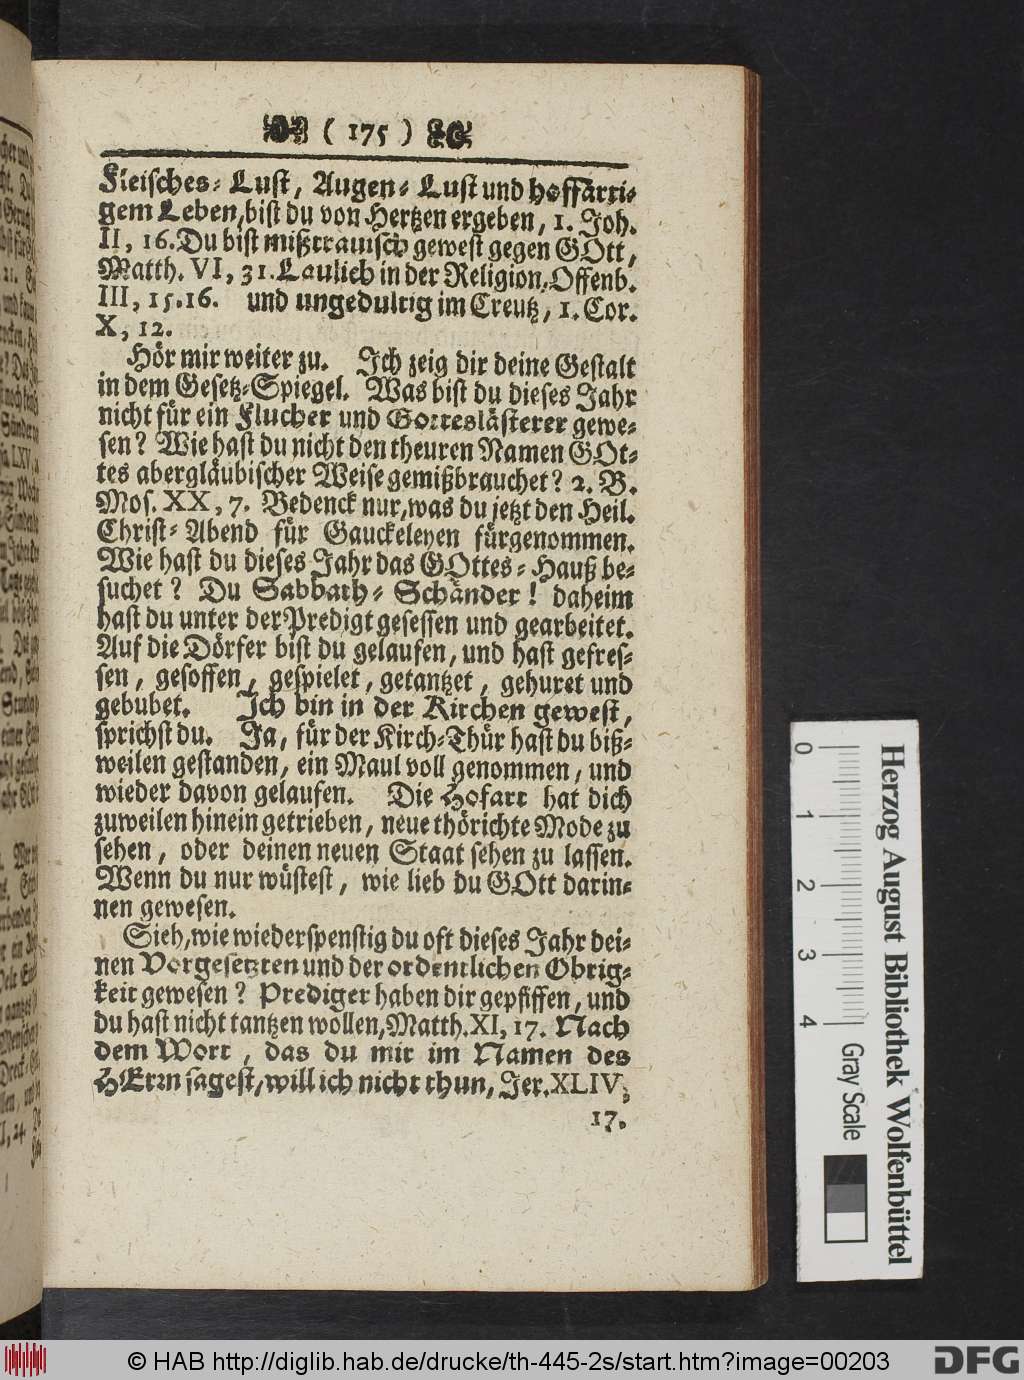 ( 175 )
Fleisches- Lust, Augen- Lust und hoffärti-
gem Leben, bist du von Hertzen ergeben, 1. Joh.
II, 16. Du bist mißtrauisch gewest gegen GOtt,
Matth. VI, 31. Laulich in der Religion, Offenb.
III, 15.16. und ungedultig im Creutz, 1. Cor.
X, 12.
Hör mir weiter zu. Ich zeig dir deine Gestalt
in dem Gesetz-Spiegel. Was bist du dieses Jahr
nicht für ein Flucher und Gotteslästerer gewe-
sen? Wie hast du nicht den theuren Namen GOt-
tes abergläubischer Weise gemißbrauchet? 2. B.
Mos. XX, 7. Bedenck nur, was du jetzt den Heil.
Christ- Abend für Gauckeleyen fürgenommen.
Wie hast du dieses Jahr das GOttes- Hauß be-
suchet? Du Sabbath- Schänder! daheim
hast du unter der Predigt gesessen und gearbeitet.
Auf die Dörfer bist du gelaufen, und hast gefres-
sen, gesoffen, gespielet, getantzet, gehuret und
gebubet. Ich bin in der Kirchen gewest,
sprichst du. Ja, für der Kirch-Thür hast du biß-
weilen gestanden, ein Maul voll genommen, und
wieder davon gelaufen. Die Hofart hat dich
zuweilen hinein getrieben, neue thörichte Mode zu
sehen, oder deinen neuen Staat sehen zu lassen.
Wenn du nur wüstest, wie lieb du GOtt darin-
nen gewesen.
Sieh, wie wiederspenstig du oft dieses Jahr dei-
nen Vorgesetzten und der ordentlichen Obrig-
keit gewesen? Prediger haben dir gepfiffen, und
du hast nicht tantzen wollen, Matth. XI, 17. Nach
dem Wort, das du mir im Namen des
HErrn sagest, will ich nicht thun, Jer. XLIV,
17.
0 1 2 3 4
Gray Scale
Herzog August Bibliothek Wolfenbüttel
© HAB http://diglib.hab.de/drucke/th-445-2s/start.htm?image=00203
DFG